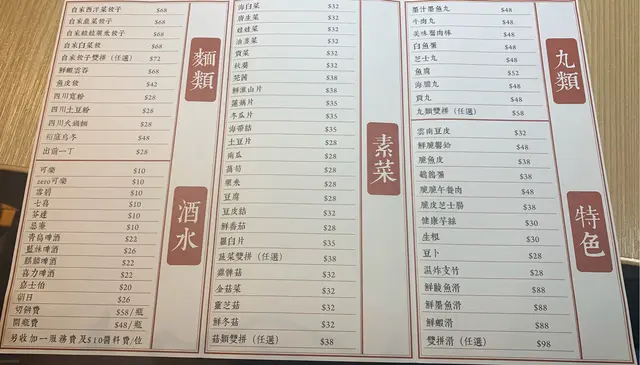 麵類
自家西洋菜餃子 $68
自家韭菜餃子 $68
自家娃娃粟米餃子 $68
自家白菜餃 $68
自家餃子雙拼（任選） $72
鮮蝦雲吞 $68
魚皮餃 $42
四川寬粉 $28
四川土豆粉 $28
四川火鍋麵 $28
稻庭烏冬 $48
出前一丁 $28
酒水
可樂 $10
zero可樂 $10
雪碧 $10
七喜 $10
芬達 $10
忌廉 $10
青島啤酒 $22
藍妹啤酒 $26
麒麟啤酒 $22
喜力啤酒 $22
嘉士伯 $20
朝日 $26
切餅費 $58/瓶
開瓶費 $48/瓶
另收加一服務費及$10醬料費/位
素菜
海白菜 $32
唐生菜 $32
娃娃菜 $32
油麥菜 $32
貢菜 $32
秋葵 $32
芫茜 $38
鮮淮山片 $38
蓮藕片 $35
冬瓜片 $35
海帶結 $35
土豆片 $28
南瓜 $28
萵筍 $28
粟米 $28
豆腐 $28
豆皮結 $32
鮮番茄 $28
蘿白片 $35
蔬菜雙拼（任選） $38
雞髀菇 $32
金菇菜 $32
靈芝菇 $32
鮮冬菇 $32
菇類雙拼（任選） $38
丸類
墨汁墨魚丸 $48
牛肉丸 $48
美味蟹肉棒 $48
白魚蛋 $48
芝士丸 $48
魚腐 $52
海膽丸 $48
貢丸 $48
丸類雙拼（任選） $58
特色
雲南豆皮 $32
鮮脆響鈴 $48
脆魚皮 $48
鵪鶉蛋 $38
脆脆午餐肉 $48
脆皮芝士腸 $38
健康芋絲 $30
生根 $30
豆卜 $28
温炸支竹 $28
鮮鯪魚滑 $88
鮮墨魚滑 $88
鮮蝦滑 $88
雙拼滑（任選） $98